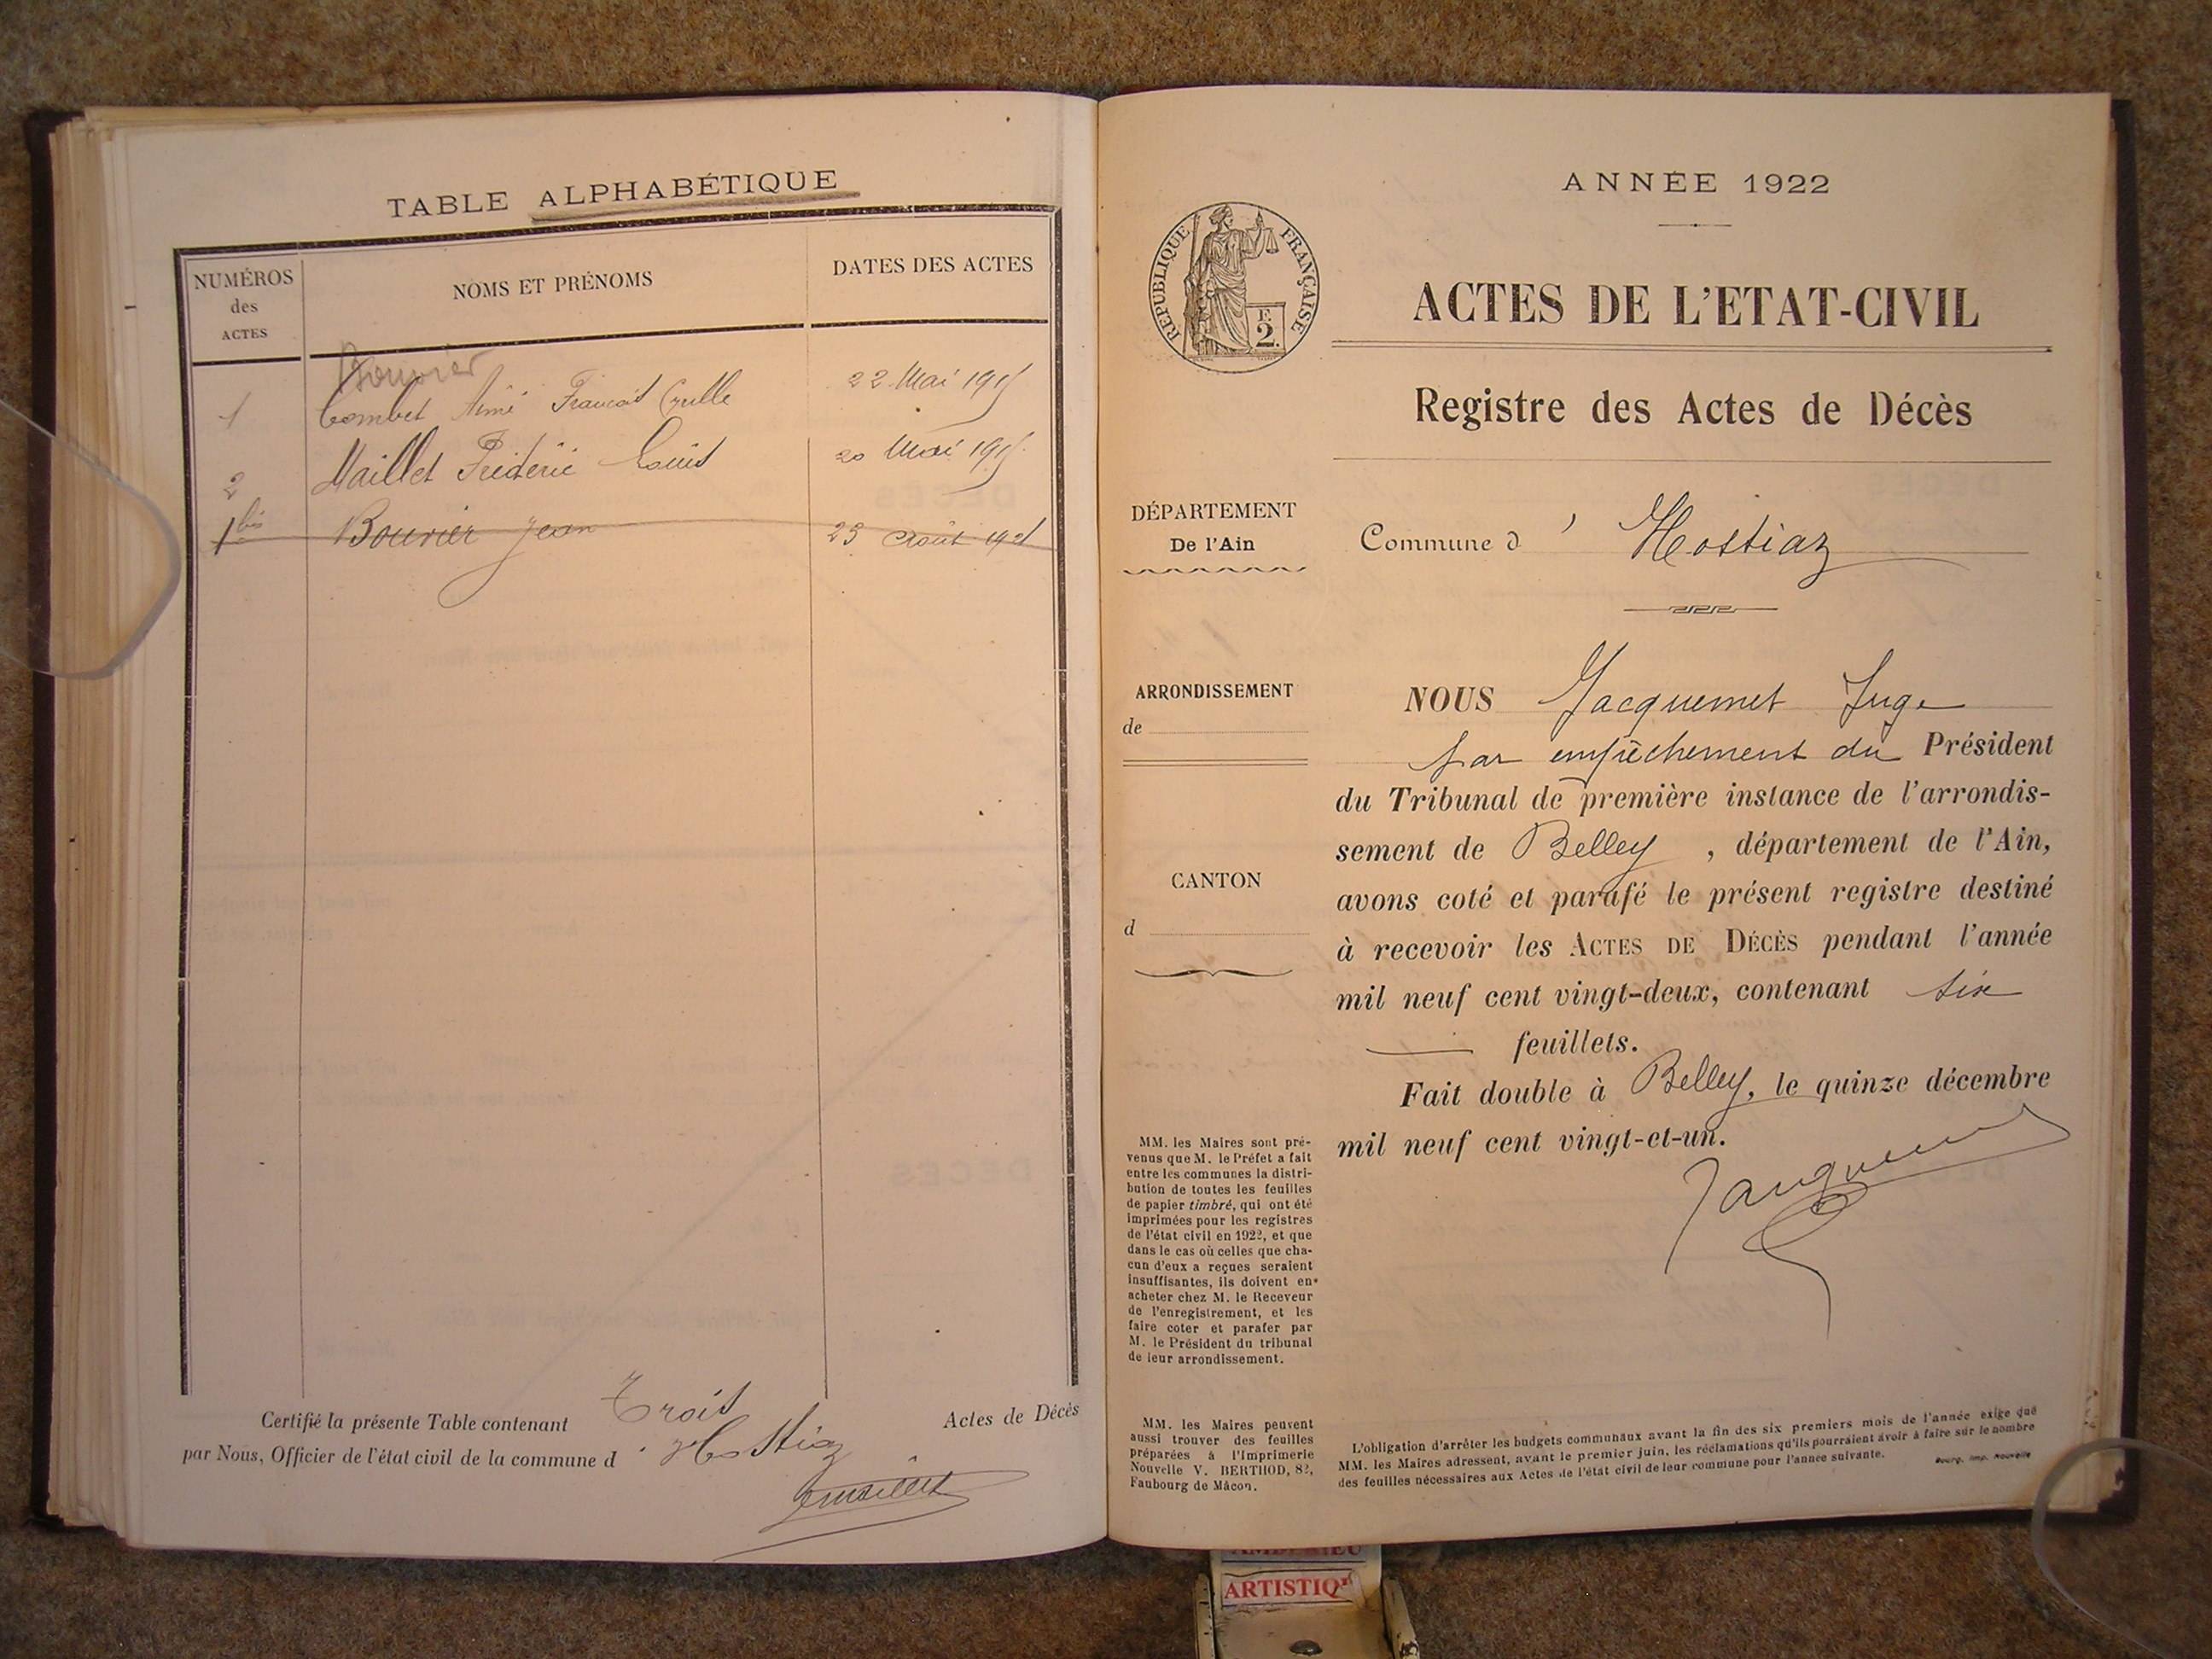 TABLE ALPHABÉTIQUE
NUMÉROS
des
ACTES
NOMS ET PRÉNOMS
DATES DES ACTES
Bouvier
1 Combet Aimé François 22 Mai 191
2 Maillet Frédéric Louis 20 Mai 191
1bis Bouvier Jean 23 Août 1921
Certifié la présente Table contenant Trois Actes de Décès
par Nous, Officier de l'état civil de la commune d' Hostiaz
ANNÉE 1922
RÉPUBLIQUE FRANÇAISE
F.
2.
ACTES DE L'ETAT-CIVIL
Registre des Actes de Décès
DÉPARTEMENT
De l'Ain
Commune d' Hostiaz
ARRONDISSEMENT
de
CANTON
d
NOUS Jacquemet Juge
par empêchement du Président
du Tribunal de première instance de l'arrondis-
sement de Belley , département de l'Ain,
avons coté et parafé le présent registre destiné
à recevoir les ACTES DE DÉCÈS pendant l'année
mil neuf cent vingt-deux, contenant six
feuillets.
Fait double à Belley, le quinze décembre
mil neuf cent vingt-et-un.
Jacquemet
MM. les Maires sont pré-
venus que M. le Préfet a fait
entre les communes la distri-
bution de toutes les feuilles
de papier timbré, qui ont été
imprimées pour les registres
de l'état civil en 1922, et que
dans le cas où celles que cha-
cun d'eux a reçues seraient
insuffisantes, ils doivent en
acheter chez M. le Receveur
de l'enregistrement, et les
faire coter et parafer par
M. le Président du tribunal
de leur arrondissement.
MM. les Maires peuvent
aussi trouver des feuilles
préparées à l'Imprimerie
Nouvelle V. BERTHOD, 82,
Faubourg de Mâcon.
L'obligation d'arrêter les budgets communaux avant la fin des six premiers mois de l'année exige que
MM. les Maires adressent, avant le premier juin, les réclamations qu'ils pourraient avoir à faire sur le nombre
des feuilles nécessaires aux Actes de l'état civil de leur commune pour l'année suivante.
Bourg, Imp. Nouvelle
ARTISTIQ